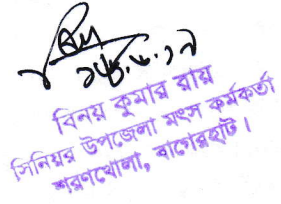 বিনয় কুমার রায়
সিনিয়র উপজেলা মৎস কর্মকর্তা
শরণখোলা, বাগেরহাট।